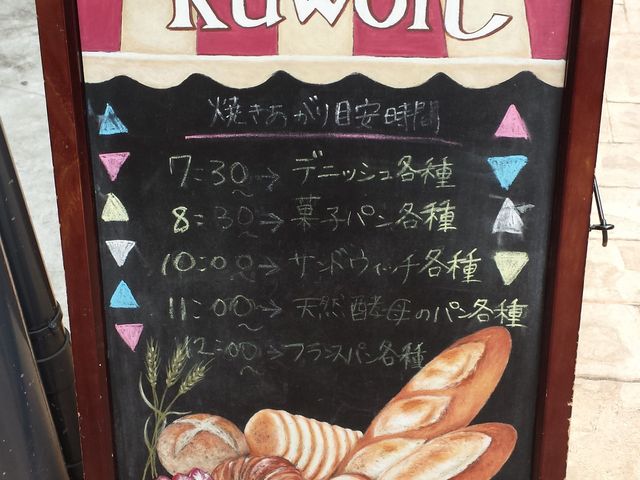 Kuwon
焼きあがり目安時間
7:30〜→ デニッシュ各種
8:30〜→ 菓子パン各種
10:00〜→ サンドウィッチ各種
11:00〜→ 天然酵母のパン各種
12:00〜→ フランスパン各種